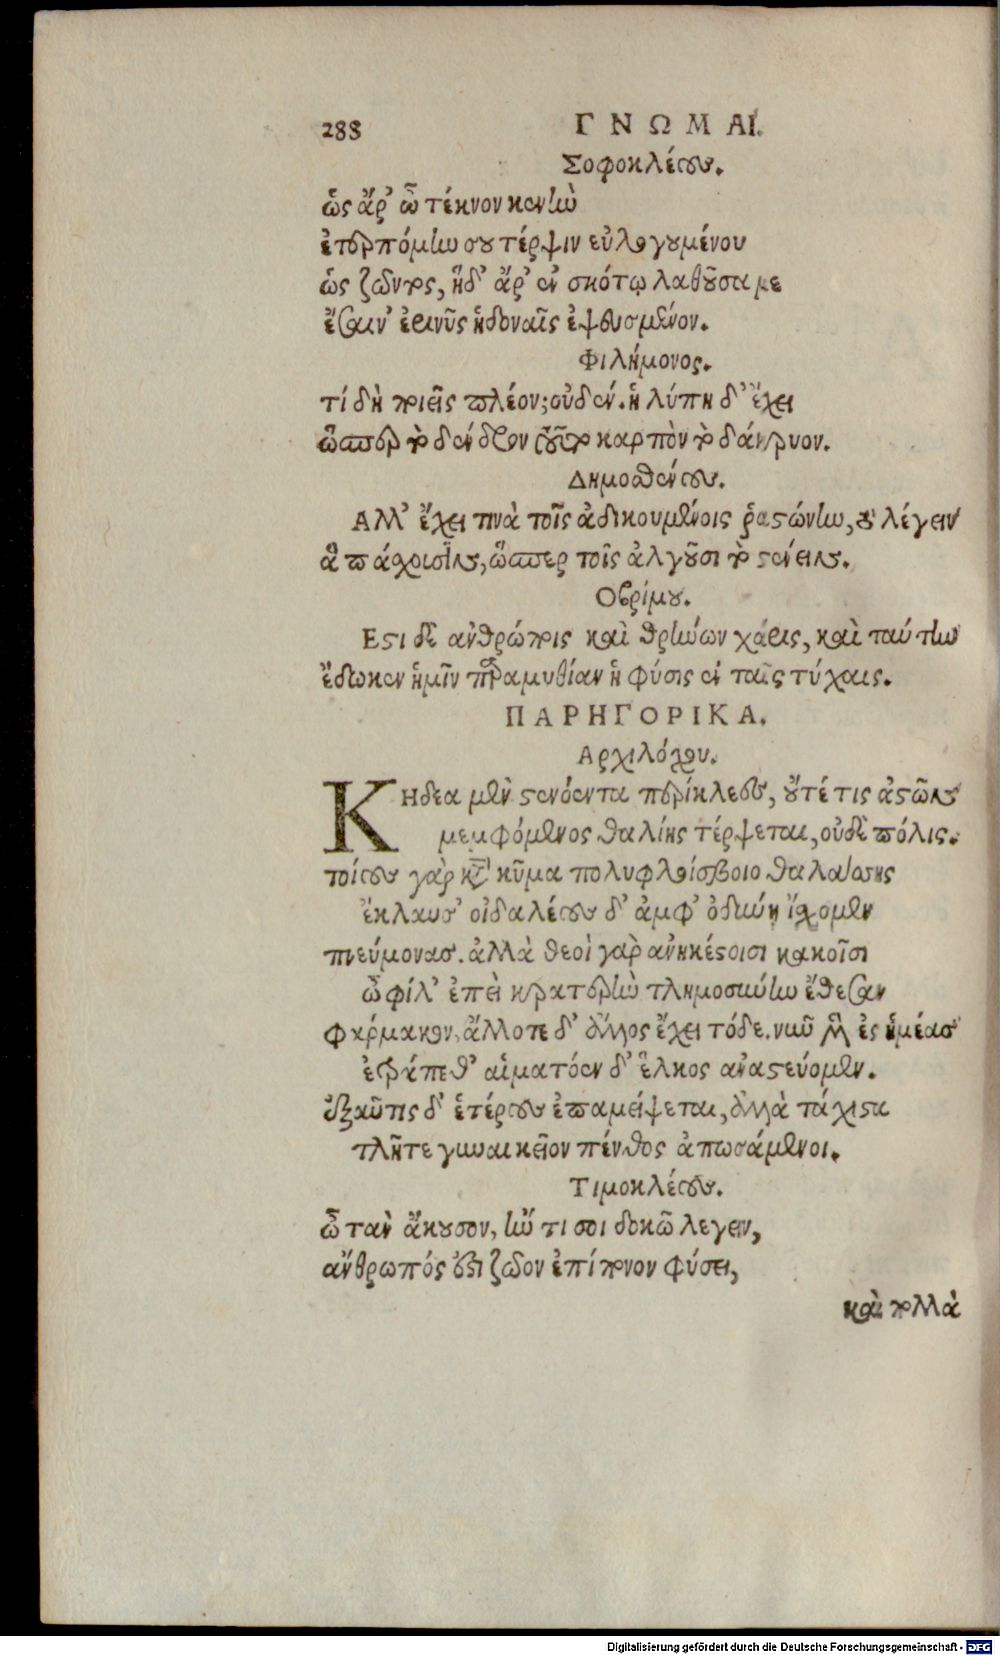 288 ΓΝΩΜΑΙ.
Σοφοκλέους.
ὡς ἄρ' ὦ τέκνον κενὴν
ἐτερπόμην σου τέρψιν εὐλογουμένου
ὡς ζῶντος, ἡδ' ἄρ' ἐν σκότῳ λαθοῦσα με
ἔσαιν' ἐρινῦς ἡδοναῖς ἐψευσμένον.
Φιλήμονος.
τί δὴ ποιεῖς πλέον; οὐδέν. ἡ λύπη δ' ἔχει
ὥσπερ τὸ δένδρον τοῦτο καρπὸν τὸ δάκρυον.
Δημοσθένους.
Αλλ' ἔχει τινὰ τοῖς ἀδικουμένοις ῥαστώνην, τὸ λέγειν
ἃ πάσχουσιν, ὥσπερ τοῖς ἀλγοῦσι τὸ στένειν.
Οβρίμου.
Εστι δὲ ἀνθρώποις καὶ θρήνων χάρις, καὶ ταύτην
ἔδωκεν ἡμῖν παραμυθίαν ἡ φύσις ἐν ταῖς τύχαις.
ΠΑΡΗΓΟΡΙΚΑ.
Αρχιλόχου.
ΚΗδεα μὲν στενόεντα περίκλεες, οὔτέ τις ἀστῶν
μεμφόμενος θαλίης τέρψεται, οὐδὲ πόλις.
τοίους γὰρ κατὰ κῦμα πολυφλοίσβοιο θαλάσσης
ἔκλαυσ' οἰδαλέους δ' ἀμφ' ὀδύνη ἴχομεν
πνεύμονας. ἀλλὰ θεοὶ γὰρ ἀνηκέστοισι κακοῖσι
ὦ φίλ' ἐπεὶ κρατερὴν τλημοσύνην ἔθεσαν
φάρμακον, ἄλλοτε δ' ἄλλος ἔχει τόδε. νῦν μὲν ἐς ἡμέας
ἐτράπεθ' αἱματόεν δ' ἕλκος ἀναστεύομεν.
ἐξαῦτις δ' ἑτέρους ἐπαμείψεται, ἀλλὰ τάχιστα
τλῆτε γυναικεῖον πένθος ἀπωσάμενοι.
Τιμοκλέους.
ὦ τὰν ἄκουσον, ἤν τι σοι δοκῶ λεγειν,
ἄνθρωπός ἐστι ζῶον ἐπίπονον φύσει,
καὶ πολλὰ
Digitalisierung gefördert durch die Deutsche Forschungsgemeinschaft - DFG